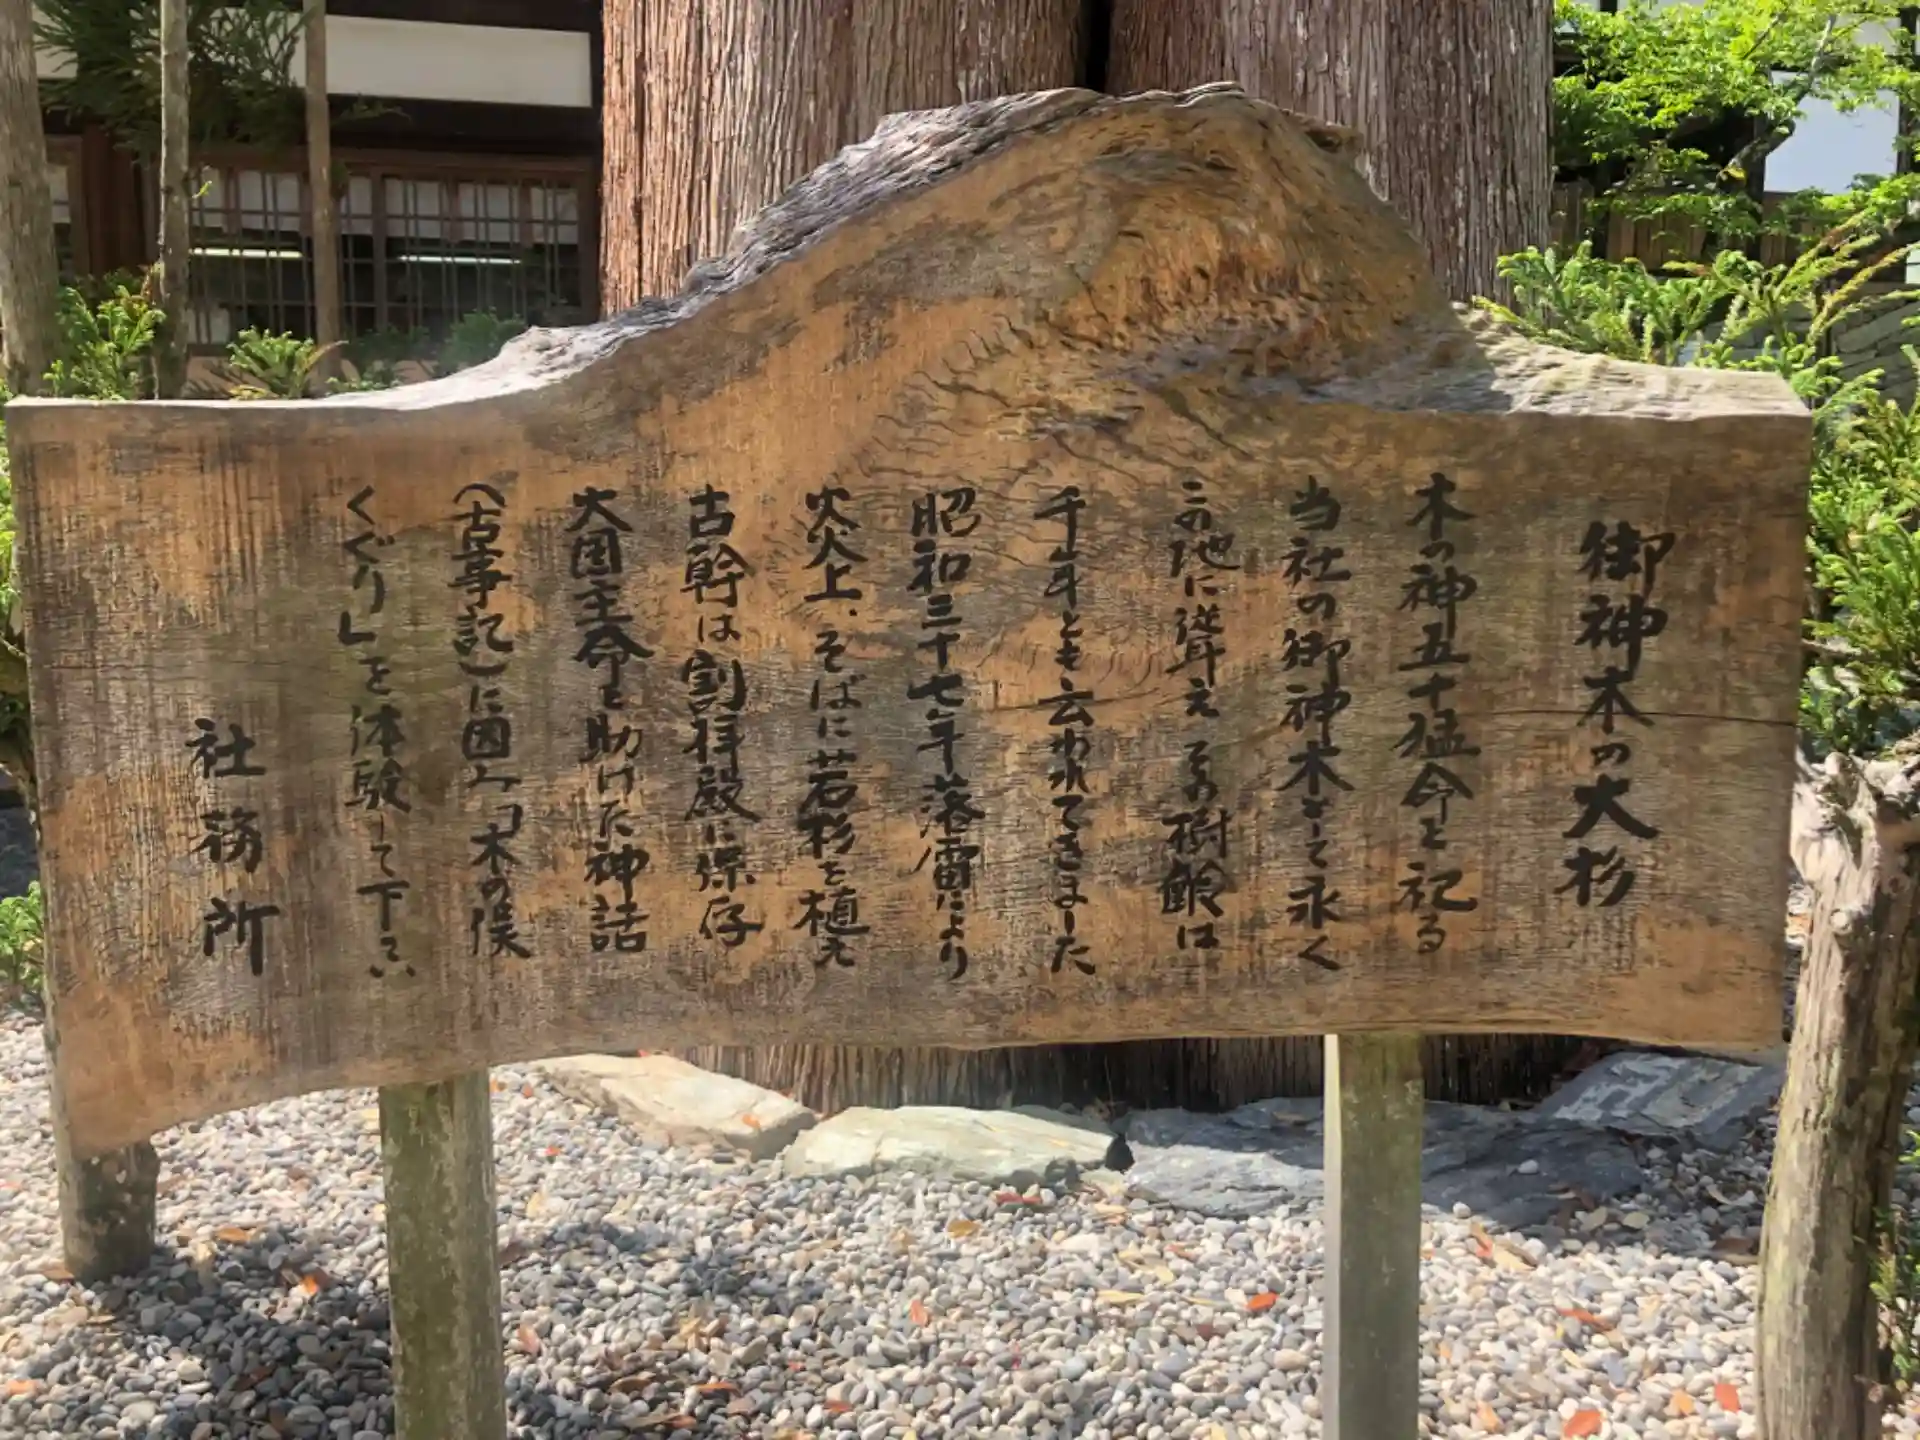 御神木の大杉
木の神五十猛命を祀る
当社の御神木として永く
この地に聳え その樹齢は
千年とも云われてきました
昭和三十七年落雷により
炎上、そばに若杉を植え
古幹は割拝殿に保存
大国主命を助けた神話
(古事記)に因ム「木の俣
くぐり」を体験して下さい
社務所